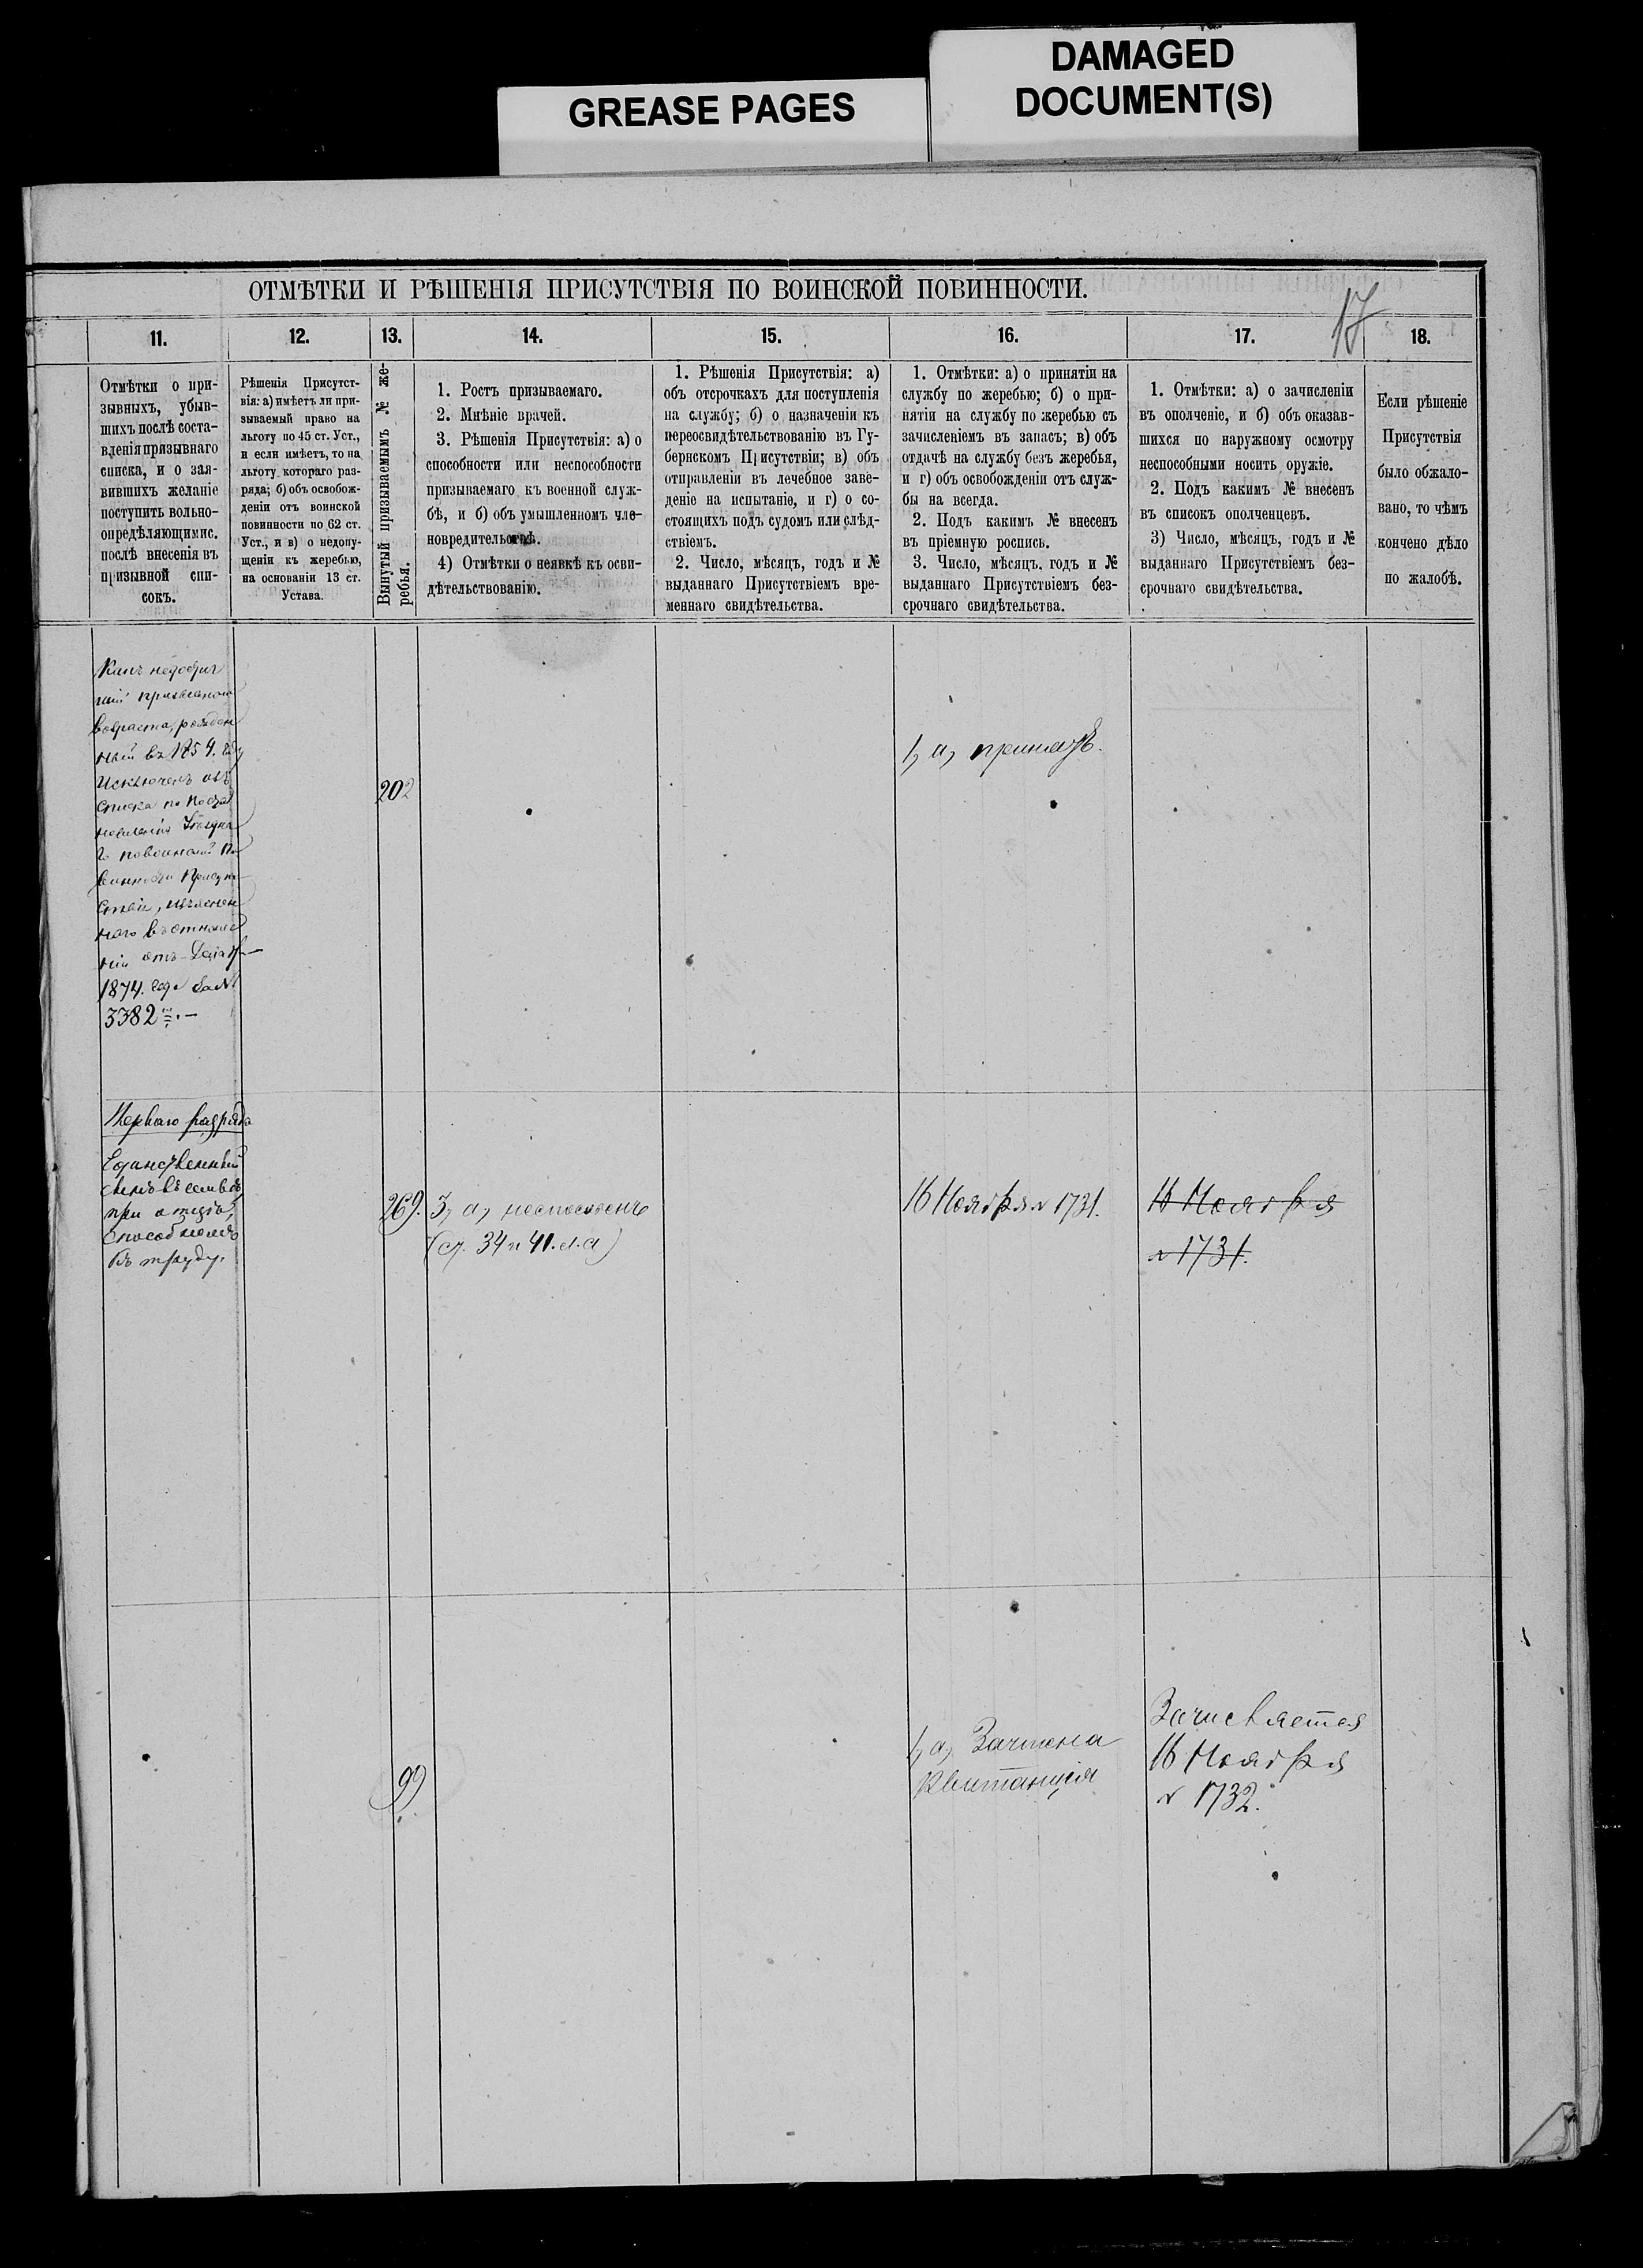 GREASE PAGES
DAMAGED
DOCUMENT(S)
ОТМѢТКИ И РѢШЕНІЯ ПРИСУТСТВІЯ ПО ВОИНСКОЙ ПОВИННОСТИ.
17
11.
12.
13.
14.
15.
16.
17.
18.
Отмѣтки о при-
зывныхъ, убыв-
шихъ послѣ соста-
вленія призывнаго
списка, и о зая-
вившихъ желаніе
поступить вольно-
опредѣляющимис.
послѣ внесенія въ
призывной спи-
сокъ.
Рѣшенія Присутст-
вія: а) имѣетъ ли при-
зываемый право на
льготу по 45 ст. Уст.,
и если имѣетъ, то на
льготу котораго раз-
ряда; б) объ освобож-
деніи отъ воинской
повинности по 62 ст.
Уст., и в) о недопу-
щеніи къ жеребью,
на основаніи 13 ст.
Устава.
Вынутый призываемымъ № же-
ребья.
1. Ростъ призываемаго.
2. Мнѣніе врачей.
3. Рѣшенія Присутствія: а) о
способности или неспособности
призываемаго къ военной служ-
бѣ, и б) объ умышленномъ чле-
новредительствѣ.
4) Отмѣтки о неявкѣ къ осви-
дѣтельствованію.
1. Рѣшенія Присутствія: а)
объ отсрочкахъ для поступленія
на службу; б) о назначеніи къ
переосвидѣтельствованію въ Гу-
бернскомъ Присутствіи; в) объ
отправленіи въ лечебное заве-
деніе на испытаніе, и г) о со-
стоящихъ подъ судомъ или слѣд-
ствіемъ.
2. Число, мѣсяцъ, годъ и №
выданнаго Присутствіемъ вре-
меннаго свидѣтельства.
1. Отмѣтки: а) о принятіи на
службу по жеребью; б) о при-
нятіи на службу по жеребью съ
зачисленіемъ въ запасъ; в) объ
отдачѣ на службу безъ жеребья,
и г) объ освобожденіи отъ служ-
бы на всегда.
2. Подъ какимъ № внесенъ
въ пріемную роспись.
3. Число, мѣсяцъ, годъ и №
выданнаго Присутствіемъ без-
срочнаго свидѣтельства.
1. Отмѣтки: а) о зачисленіи
въ ополченіе, и б) объ оказав-
шихся по наружному осмотру
неспособными носить оружіе.
2. Подъ какимъ № внесенъ
въ списокъ ополченцевъ.
3) Число, мѣсяцъ, годъ и №
выданнаго Присутствіемъ без-
срочнаго свидѣтельства.
Если рѣшеніе
Присутствія
было обжало-
вано, то чѣмъ
кончено дѣло
по жалобѣ.
возраста, рожден
ный въ 1854. году
Исключенъ изъ
списка по Поста
новленію Уѣздна
го по воинской По
винности Присут
ствія, изъяснен
наго въ отноше
ніи отъ
1874. года за №
3382
202
1, а, принятъ.
Перваго разряда
Единственный
сынъ въ семьѣ
при отцѣ,
способномъ
къ труду.
269.
3, а, неспособенъ
(ст. 34 и 41. л. А)
16 Ноября № 1731.
16 Ноября
№ 1731.
99
1, а, Зачтена
квитанція
Зачисляется
16 Ноября
№ 1732.